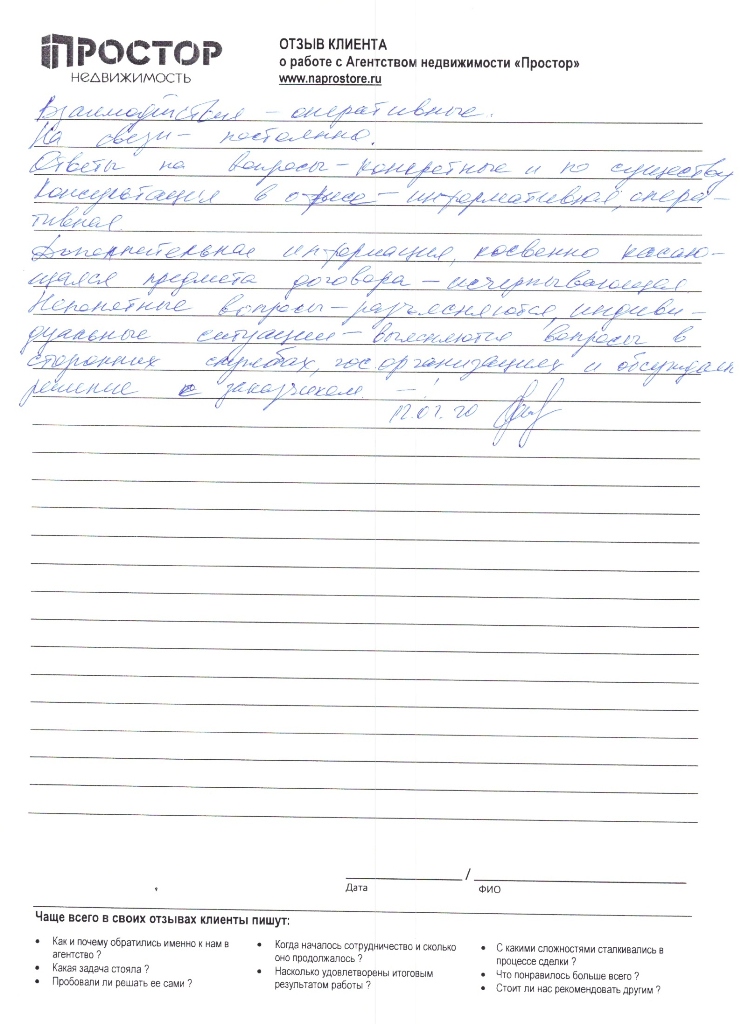 ПРОСТОР
НЕДВИЖИМОСТЬ
ОТЗЫВ КЛИЕНТА
о работе с Агентством недвижимости «Простор»
www.naprostore.ru
Взаимодействия – оперативные.
На связи – постоянно.
Ответы на вопросы – конкретные и по существу
Консультация в офисе – информативная, опера-
тивная
Дополнительная информация, косвенно касаю-
щаяся предмета договора – исчерпывающая
Непонятные вопросы – разъясняются, индиви-
дуальные ситуации – выясняются вопросы в
сторонних службах, гос. организациях и обсуждаем
решение с заказчиком – !
12.07.20
/
Дата ФИО
Чаще всего в своих отзывах клиенты пишут:
• Как и почему обратились именно к нам в
агентство ?
• Какая задача стояла ?
• Пробовали ли решать ее сами ?
• Когда началось сотрудничество и сколько
оно продолжалось ?
• Насколько удовлетворены итоговым
результатом работы ?
• С какими сложностями сталкивались в
процессе сделки ?
• Что понравилось больше всего ?
• Стоит ли нас рекомендовать другим ?